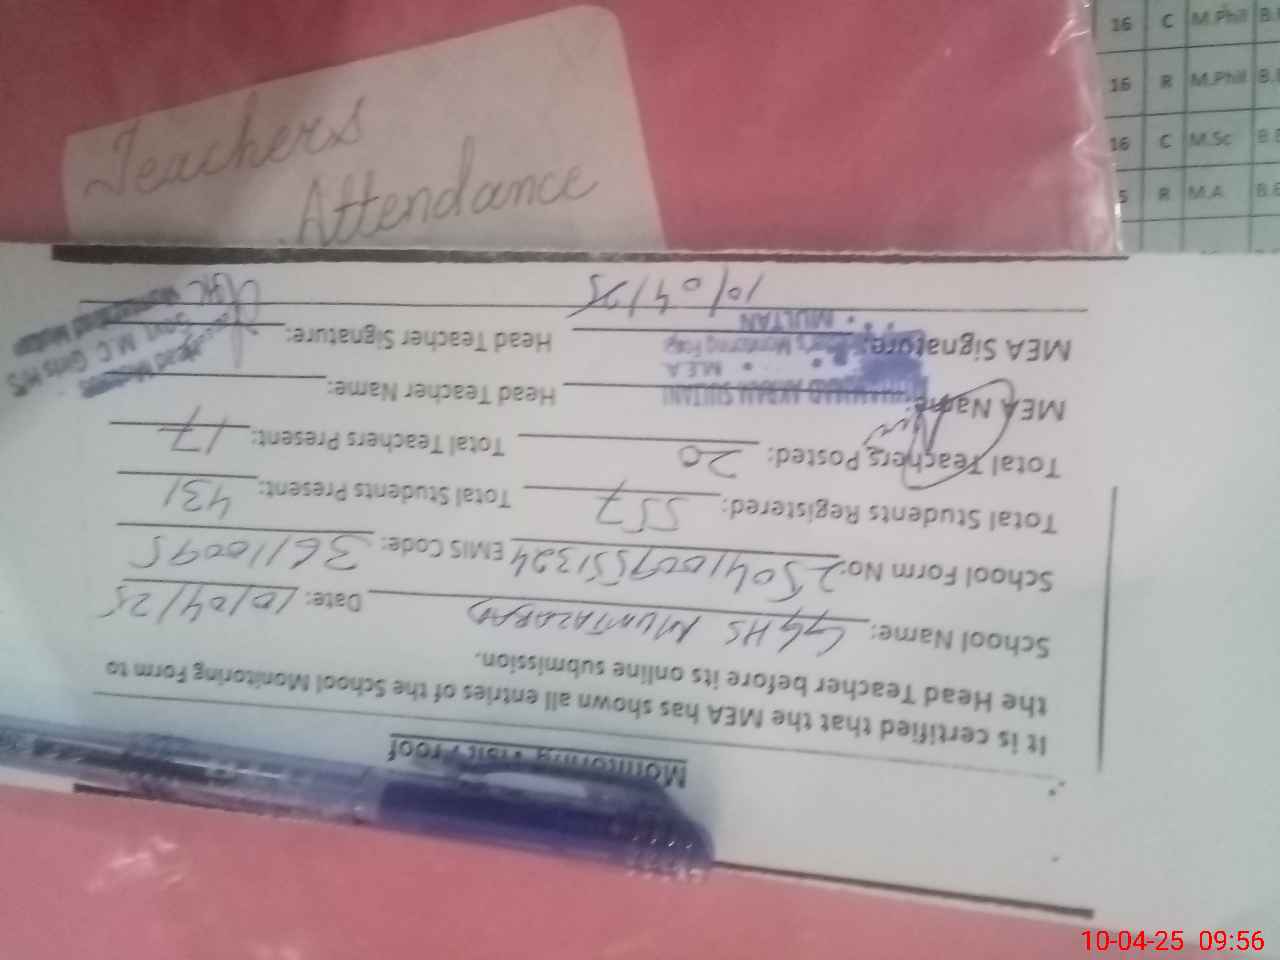 Teachers
Attendance
16 C M.Phill
16 R M.Phill
16 C M.Sc
R M.A
Monitoring Visit Proof
It is certified that the MEA has shown all entries of the School Monitoring Form to
the Head Teacher before its online submission.
School Name: GGHS MUMTAZABAD Date: 10/04/25
School Form No: 25041009551324 EMIS Code: 36110095
Total Students Registered: 557 Total Students Present: 431
Total Teachers Posted: 20 Total Teachers Present: 17
MEA Name: MUHAMMAD AKRAM SULTANI Head Teacher Name:
M.E.A
MEA Signature: Head Teacher Signature:
MULTAN
10/04/25
Govt. M.C. Girls H/S
10-04-25 09:56